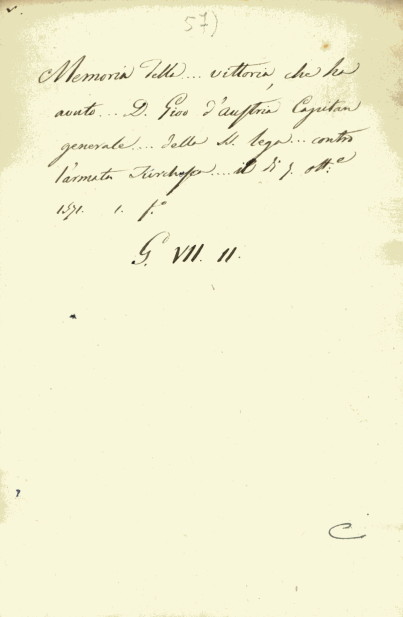 57)
Memoria della ... vittoria, che ha
avuto ... D. Gioo d'austria Capitan
generale ... della S. Lega ... contro
l'armata Turchesca ... il dì 7. ott.e
1571. 1. f.o
G. VII. 11.
C